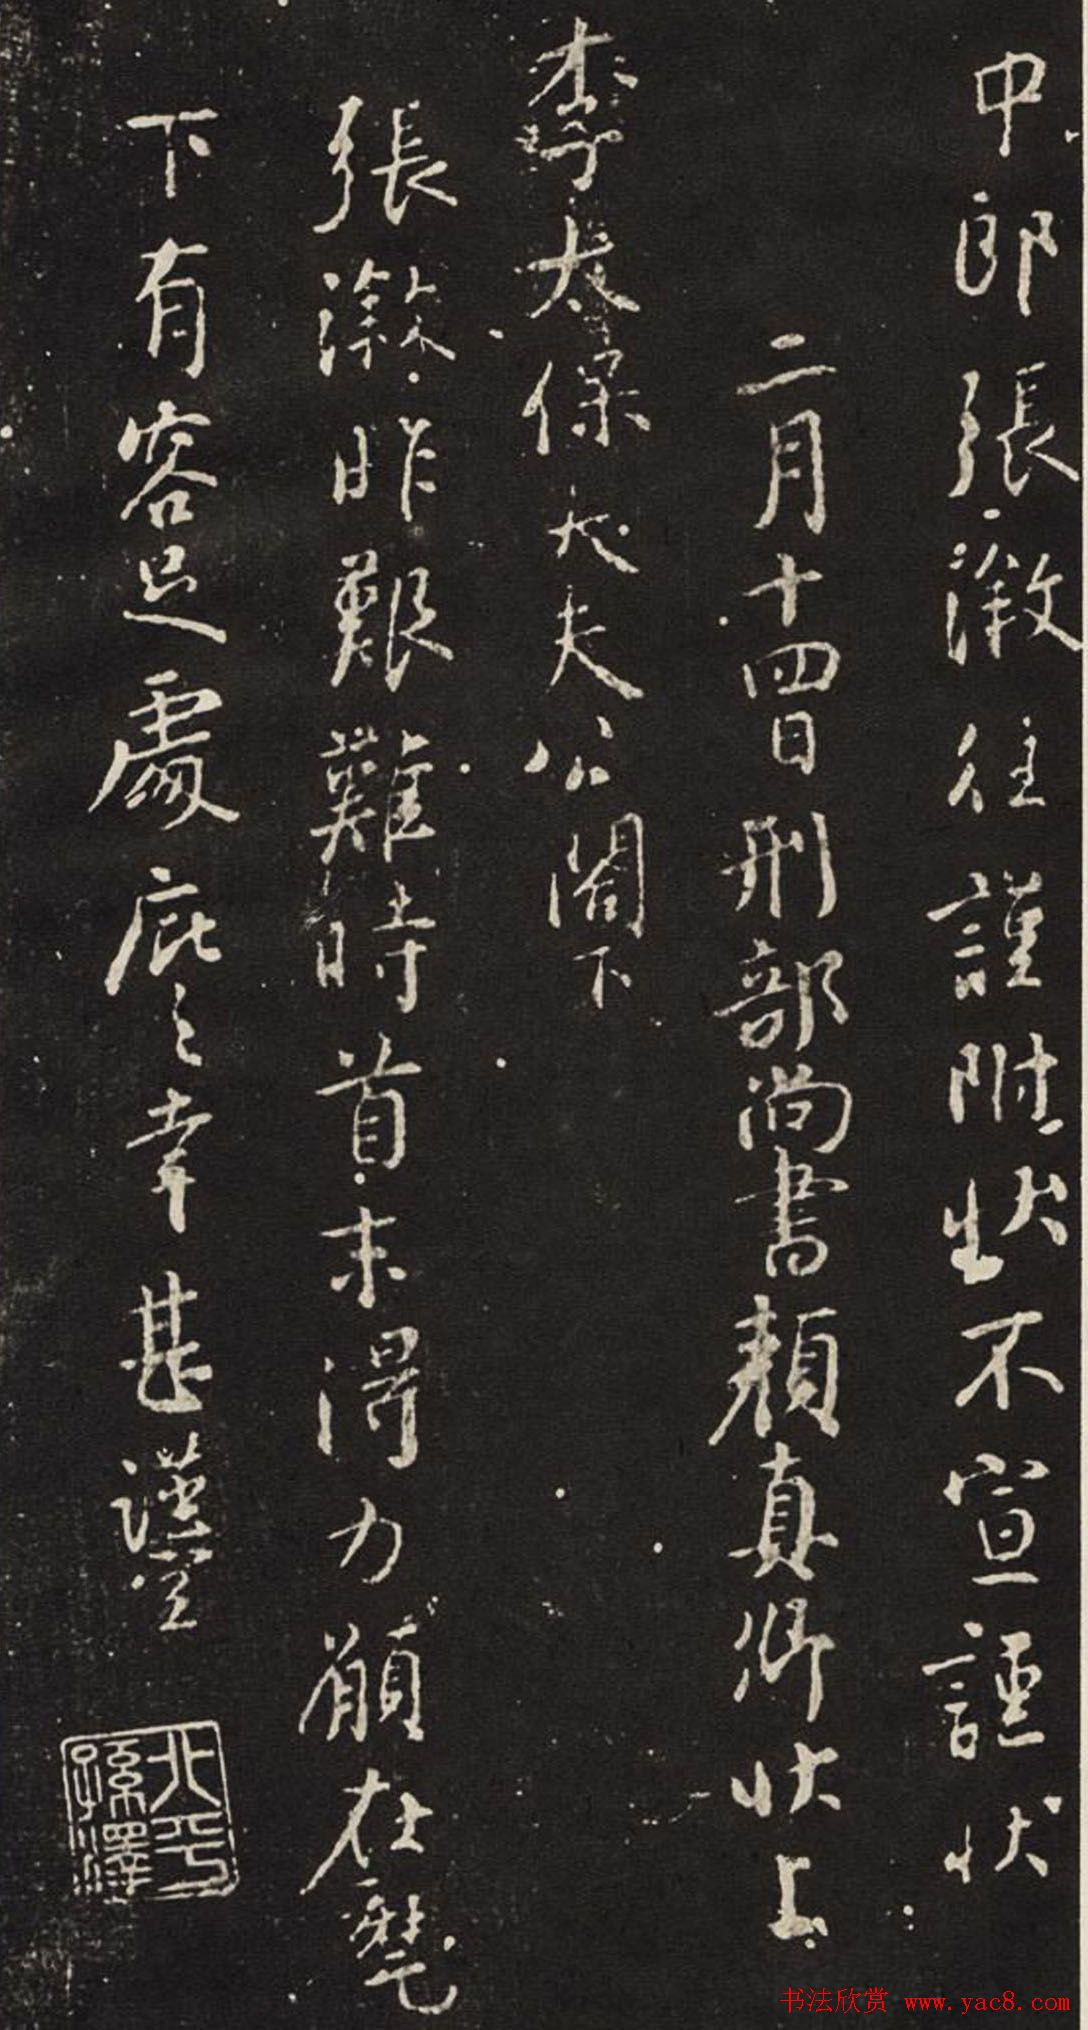 中郎張澂往謹附狀不宣謹狀
二月十四日刑部尚書顏真卿狀上
李太保大夫公閤下
張澂昨艱難時首末得力願在麾
下有容足處庇之幸甚謹空
北平
孫澤
书法欣赏 www.yac8.com